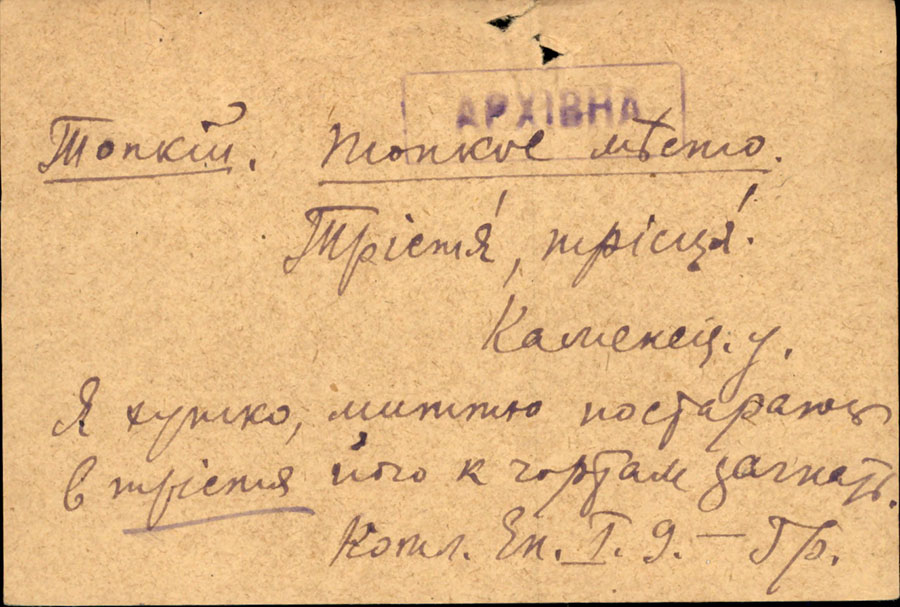 АРХІВНА
Топкій. Топкое мѣсто.
Трістя́, трісця́.
Каменец. у.
Я хутко, миттю постараюсь
в трістя його к чортам загнать.
Котл. Ен. I. 9. — Гр.